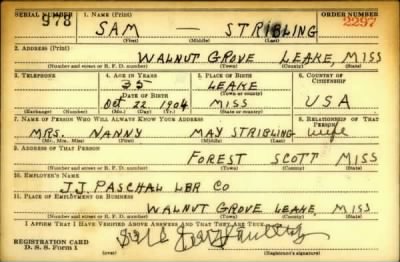 SERIAL NUMBER 978 1. NAME (Print) ORDER NUMBER 2297
SAM — STRIBLING
(First) (Middle) (Last)
2. ADDRESS (Print)
WALNUT GROVE LEAKE, MISS
(Number and street or R. F. D. number) (Town) (County) (State)
3. TELEPHONE 4. AGE IN YEARS 5. PLACE OF BIRTH 6. COUNTRY OF CITIZENSHIP
35 LEAKE
DATE OF BIRTH (Town or county)
Oct. 22 1904 MISS USA
(Exchange) (Number) (Mo.) (Day) (Yr.) (State or country)
7. NAME OF PERSON WHO WILL ALWAYS KNOW YOUR ADDRESS 8. RELATIONSHIP OF THAT PERSON
MRS. NANNY MAY STRIBLING wife
(Mr., Mrs., Miss) (First) (Middle) (Last)
9. ADDRESS OF THAT PERSON
FOREST SCOTT MISS
(Number and street or R. F. D. number) (Town) (County) (State)
10. EMPLOYER'S NAME
J.J. PASCHAL LBR CO
11. PLACE OF EMPLOYMENT OR BUSINESS
WALNUT GROVE LEAKE, MISS
(Number and street or R. F. D. number) (Town) (County) (State)
I AFFIRM THAT I HAVE VERIFIED ABOVE ANSWERS AND THAT THEY ARE TRUE.
REGISTRATION CARD
D. S. S. Form 1 (Registrant's signature)